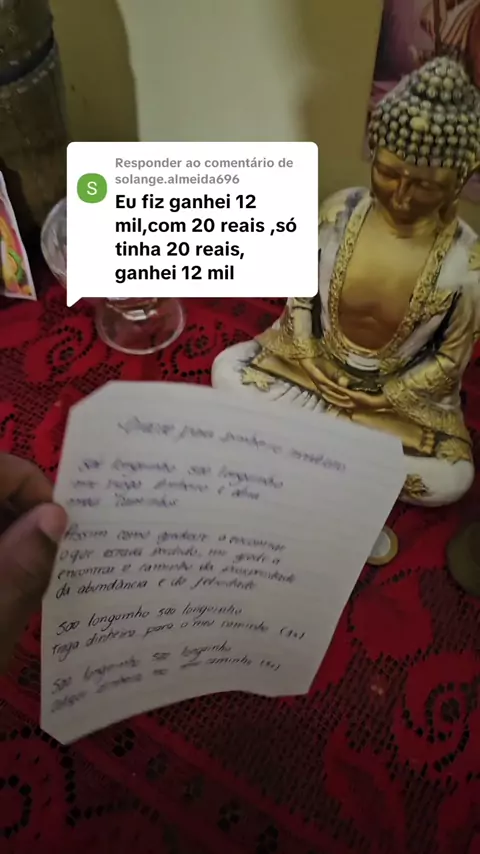 Responder ao comentário de
solange.almeida696
S
Eu fiz ganhei 12
mil,com 20 reais ,só
tinha 20 reais,
ganhei 12 mil
para dinheiro imediato
São longuinho São longuinho
me traga dinheiro e abra
meus caminhos
Assim como ajudou a encontrar
o que estava perdido, me ajude a
encontrar o caminho da prosperidade
da abundância e da felicidade
Sao longuinho sao longuinho
Traga dinheiro para o meu caminho
Sao longuinho sao longuinho
dinheiro no meu caminho